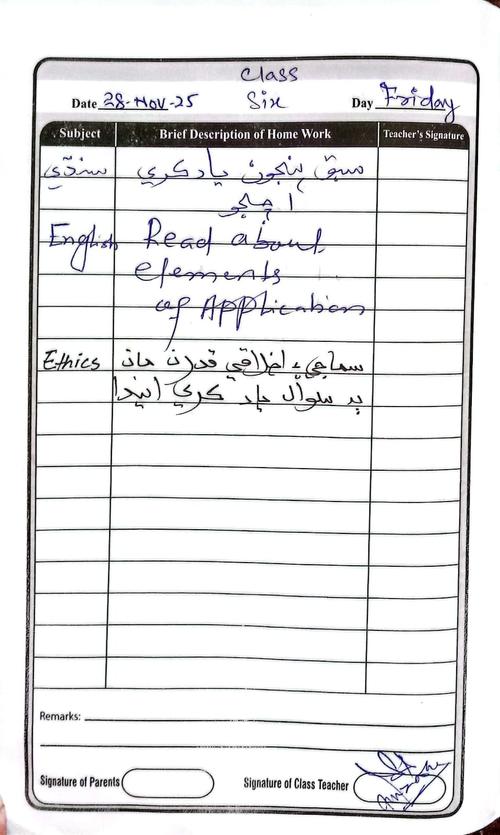 Class
Date 28-Nov-25 Six Day Friday
Subject Brief Description of Home Work Teacher's Signature
سنڌي سبق پنجون ياد ڪري
اچجو
English Read about
elements
of Application
Ethics سماجي ۽ اخلاقي قدرن مان
ٻه سوال ياد ڪري ايندا
Remarks:
Signature of Parents Signature of Class Teacher